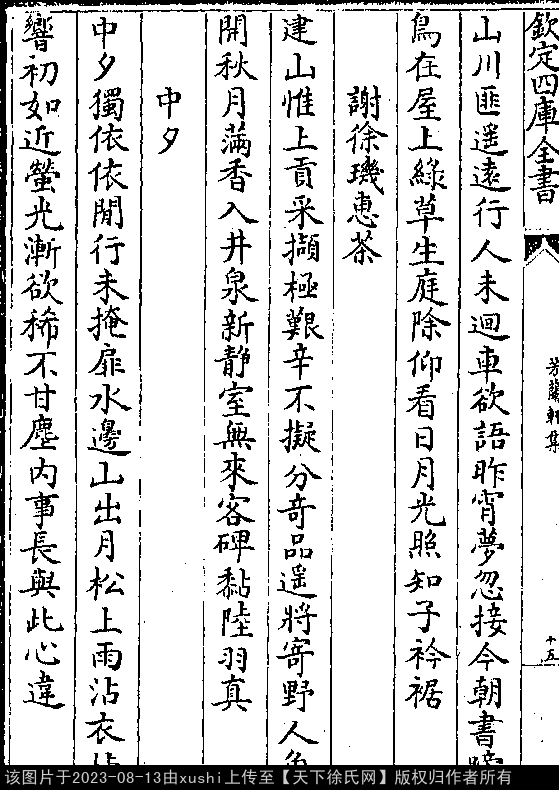 欽定四庫全書
芳蘭軒集
十五
山川匪遥遠行人未迴車欲語昨宵夢忽接今朝書
鳥在屋上綠草生庭除仰看日月光照知子衿裾
謝徐璣惠茶
建山惟上貢采擷極艱辛不擬分奇品遥將寄野人角
開秋月滿香入井泉新靜室無來客碑黏陸羽真
中夕
中夕獨依依閒行未掩扉水邊山出月松上雨沾衣
響初如近螢光漸欲稀不甘塵内事長與此心違
该图片于2023-08-13由xushi上传至【天下徐氏网】版权归作者所有